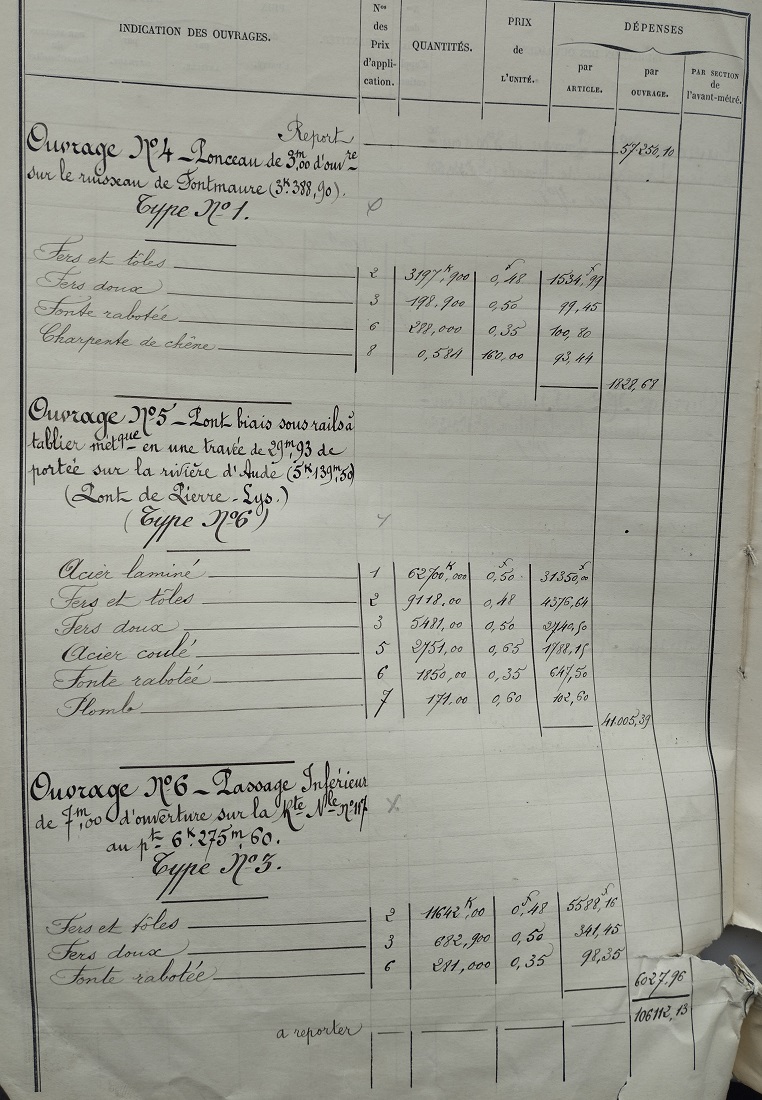 INDICATION DES OUVRAGES.
Nos des Prix d'appli-cation.
QUANTITÉS.
PRIX de L'UNITÉ.
DÉPENSES
par ARTICLE.
par OUVRAGE.
PAR SECTION de l'avant-métré.
Report 57250,10
Ouvrage No4 _ Ponceau de 3m,00 d'ouvre
sur le ruisseau de Fontmaure (3K.388,90).
Type No 1.
Fers et tôles 2 3197K,900 0f,48 1534f,99
Fers doux 3 198,900 0,50 99,45
Fonte rabotée 6 288,000 0,35 100,80
Charpente de chêne 8 0,584 160,00 93,44
1828,68
Ouvrage No5 _ Pont biais sous rails à
tablier métque en une travée de 29m,93 de
portée sur la rivière d'Aude (5K.139m,50)
(Pont de Pierre-Lys.)
(Type No6)
Acier laminé 1 62700K,000 0f,50 31350f,00
Fers et tôles 2 9118,00 0,48 4376,64
Fers doux 3 5481,00 0,50 2740,50
Acier coulé 5 2751,00 0,65 1788,15
Fonte rabotée 6 1850,00 0,35 647,50
Plomb 7 171,00 0,60 102,60
41005,39
Ouvrage No6 _ Passage Inférieur
de 7m,00 d'ouverture sur la Rte Nle no117
au pt 6K.275m,60.
Type No3.
Fers et tôles 2 11642K,00 0f,48 5588f,16
Fers doux 3 682,900 0,50 341,45
Fonte rabotée 6 281,000 0,35 98,35
6027,96
a reporter 106112,13